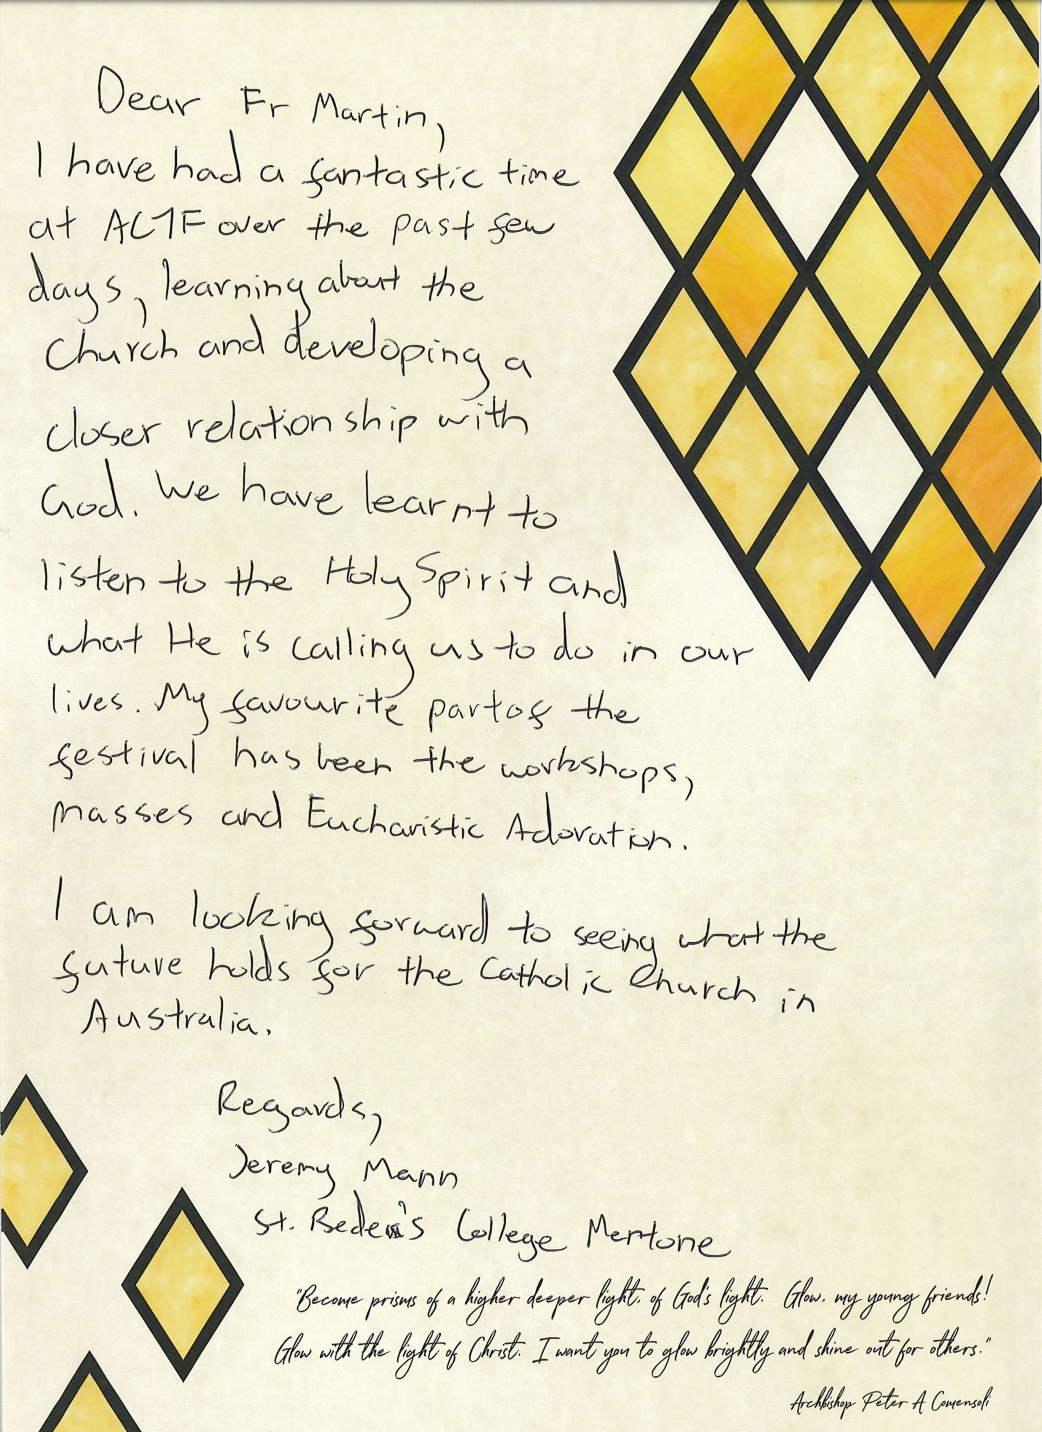 Dear Fr Martin,
I have had a fantastic time
at ACYF over the past few
days, learning about the
Church and developing a
closer relationship with
God. We have learnt to
listen to the Holy Spirit and
what He is calling us to do in our
lives. My favourite part of the
festival has been the workshops,
masses and Eucharistic Adoration.
I am looking forward to seeing what the
future holds for the Catholic Church in
Australia.
Regards,
Jeremy Mann
St. Bede's College Mentone
"Become prisms of a higher deeper light, of God's light. Glow, my young friends!
Glow with the light of Christ. I want you to glow brightly and shine out for others."
Archbishop Peter A Comensoli